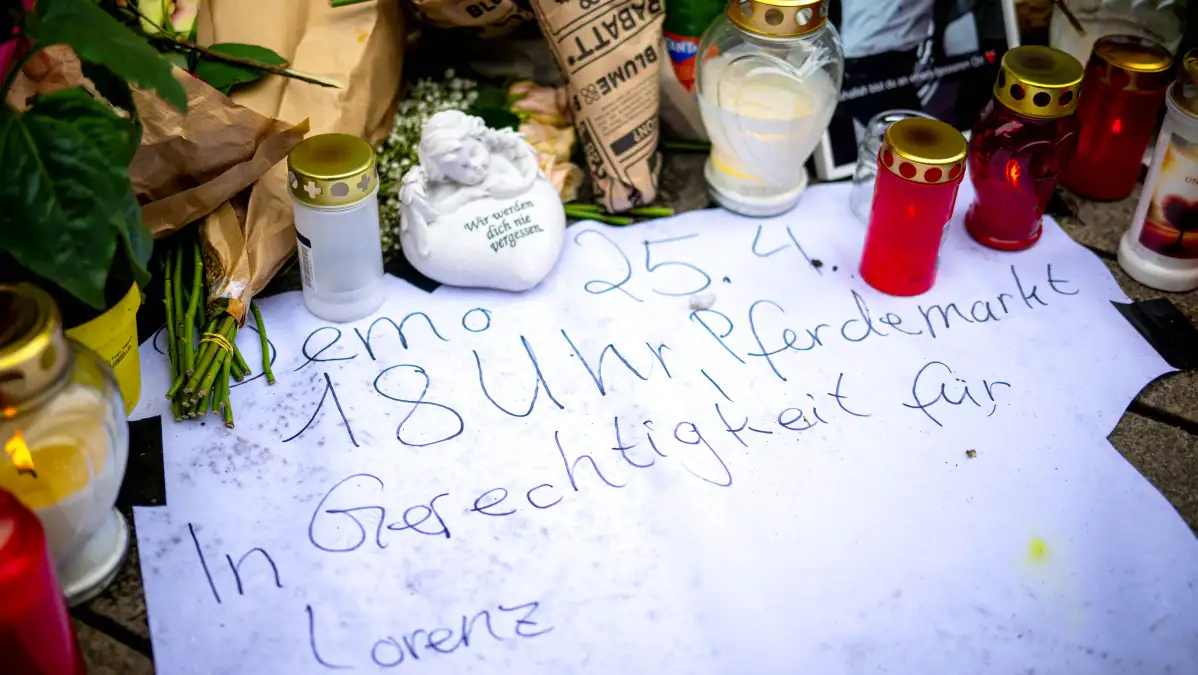 RABATT*
BLUME
Wir werden
dich nie
vergessen.
Demo 25.4.
18 Uhr, Pferdemarkt
Gerechtigkeit für
In
Lorenz